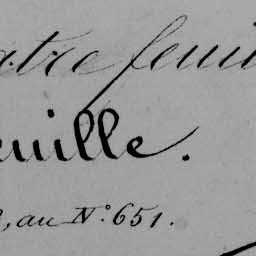 atre feuil
euille.
, au N° 651.